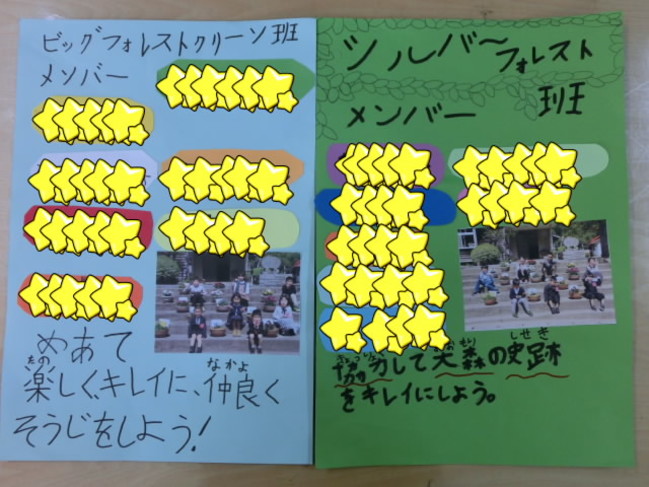 ビッグフォレストクリーン班
メンバー
めあて
たの なかよ
楽しく、キレイに、仲良く
そうじをしよう!
シルバーフォレスト
班
メンバー
しせき
協力して大森の史跡
をキレイにしよう。